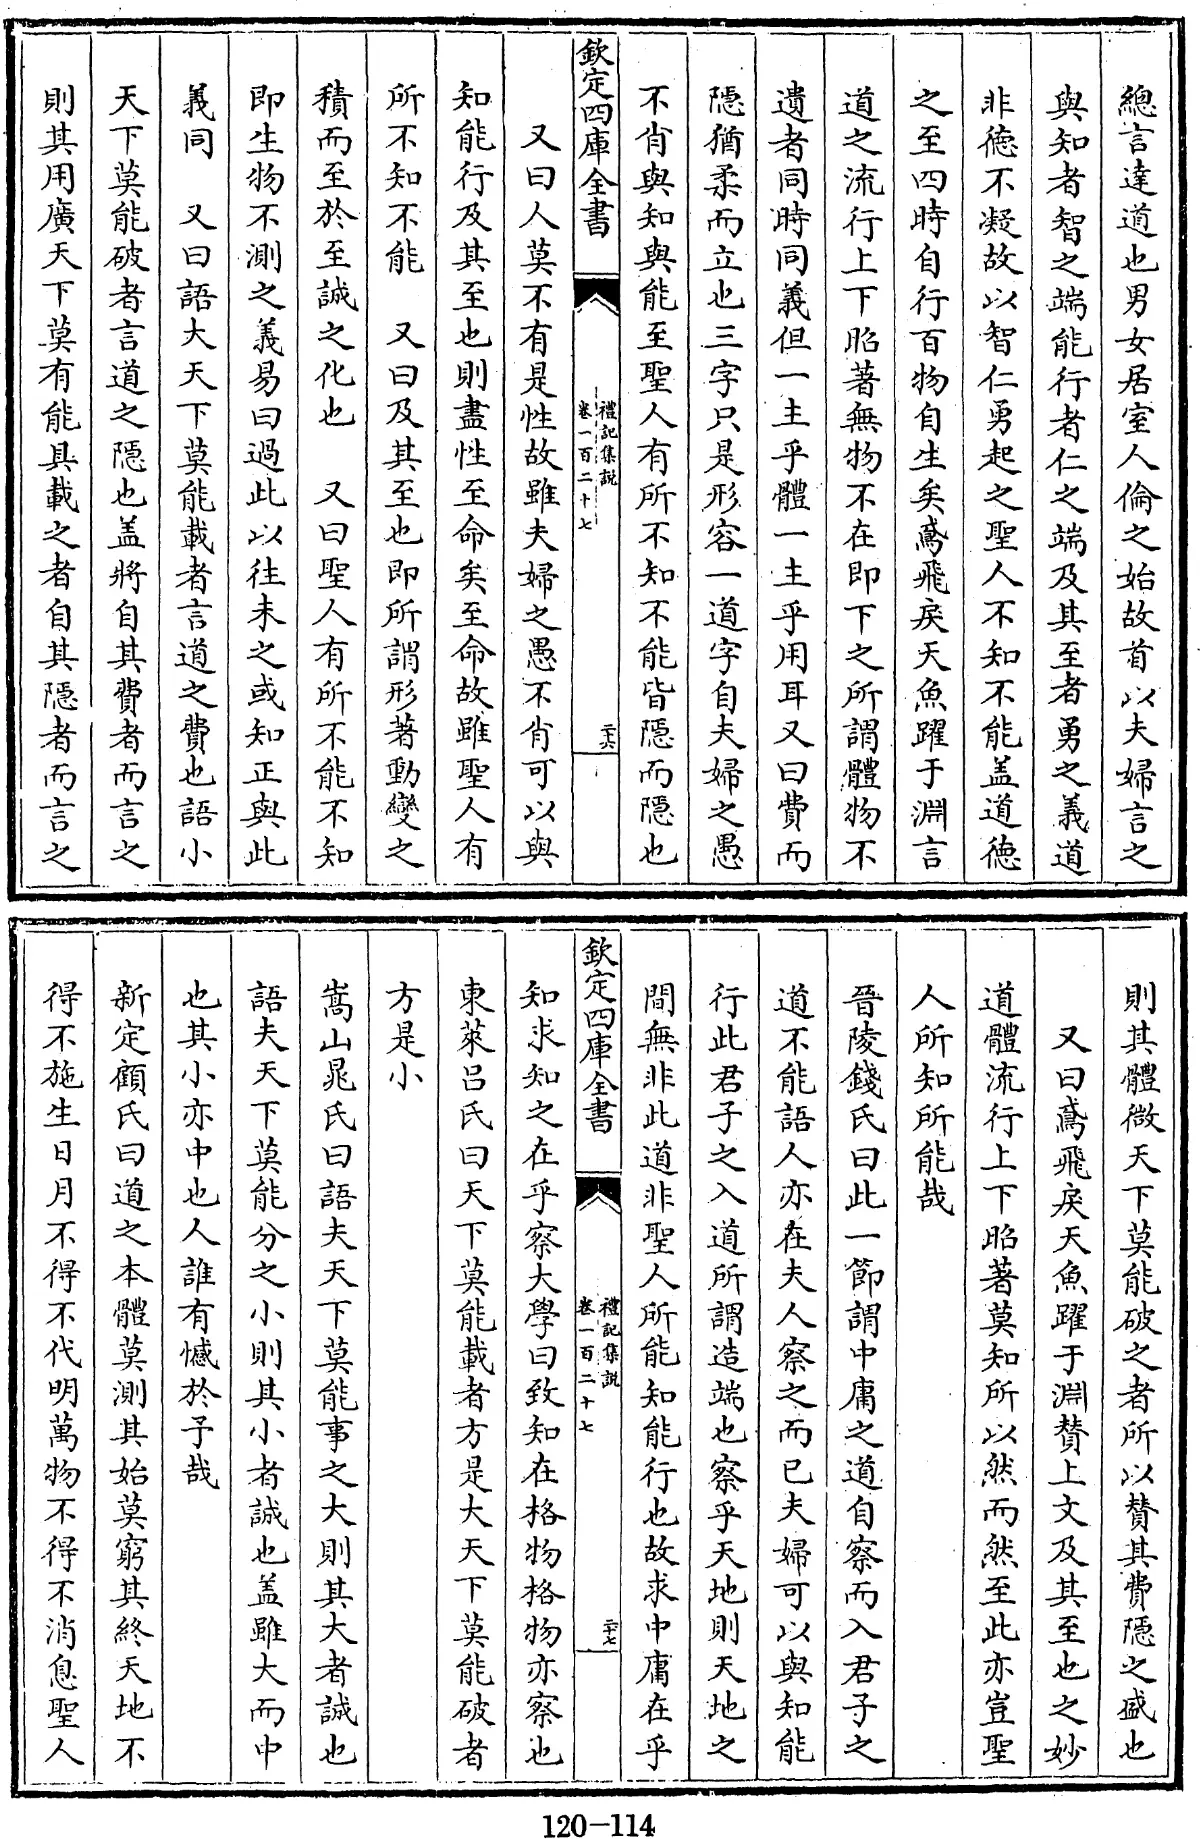 總言達道也男女居室人倫之始故首以夫婦言之
與知者智之端能行者仁之端及其至者勇之義道
非德不凝故以智仁勇起之聖人不知不能盖道德
之至四時自行百物自生矣鳶飛戾天魚躍于淵言
道之流行上下昭著無物不在即下之所謂體物不
遺者同時同義但一主乎體一主乎用耳又曰費而
隱猶柔而立也三字只是形容一道字自夫婦之愚
不肖與知與能至聖人有所不知不能皆隱而隱也
欽定四庫全書
禮記集説
卷一百二十七
二十六
又曰人莫不有是性故雖夫婦之愚不肖可以與
知能行及其至也則盡性至命矣至命故雖聖人有
所不知不能　又曰及其至也即所謂形著動變之
積而至於至誠之化也　又曰聖人有所不能不知
即生物不測之義易曰過此以往未之或知正與此
義同　又曰語大天下莫能載者言道之費也語小
天下莫能破者言道之隱也盖將自其費者而言之
則其用廣天下莫有能具載之者自其隱者而言之
則其體微天下莫能破之者所以賛其費隱之盛也
又曰鳶飛戾天魚躍于淵賛上文及其至也之妙
道體流行上下昭著莫知所以然而然至此亦豈聖
人所知所能哉
晉陵錢氏曰此一節謂中庸之道自察而入君子之
道不能語人亦在夫人察之而已夫婦可以與知能
行此君子之入道所謂造端也察乎天地則天地之
間無非此道非聖人所能知能行也故求中庸在乎
欽定四庫全書
禮記集説
卷一百二十七
二十七
知求知之在乎察大學曰致知在格物格物亦察也
東萊吕氏曰天下莫能載者方是大天下莫能破者
方是小
嵩山晁氏曰語夫天下莫能事之大則其大者誠也
語夫天下莫能分之小則其小者誠也盖雖大而中
也其小亦中也人誰有憾於予哉
新定顧氏曰道之本體莫測其始莫窮其終天地不
得不施生日月不得不代明萬物不得不消息聖人
120-114